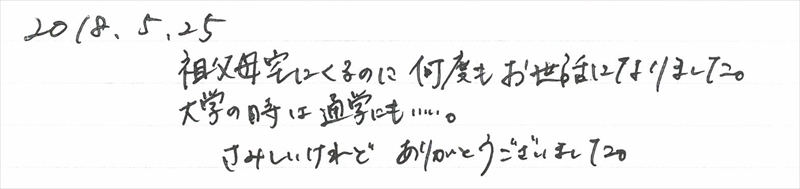 2018.5.25
祖父母宅にくるのに何度もお世話になりました。
大学の時は通学にも……。
さみしいけれど ありがとうございました。